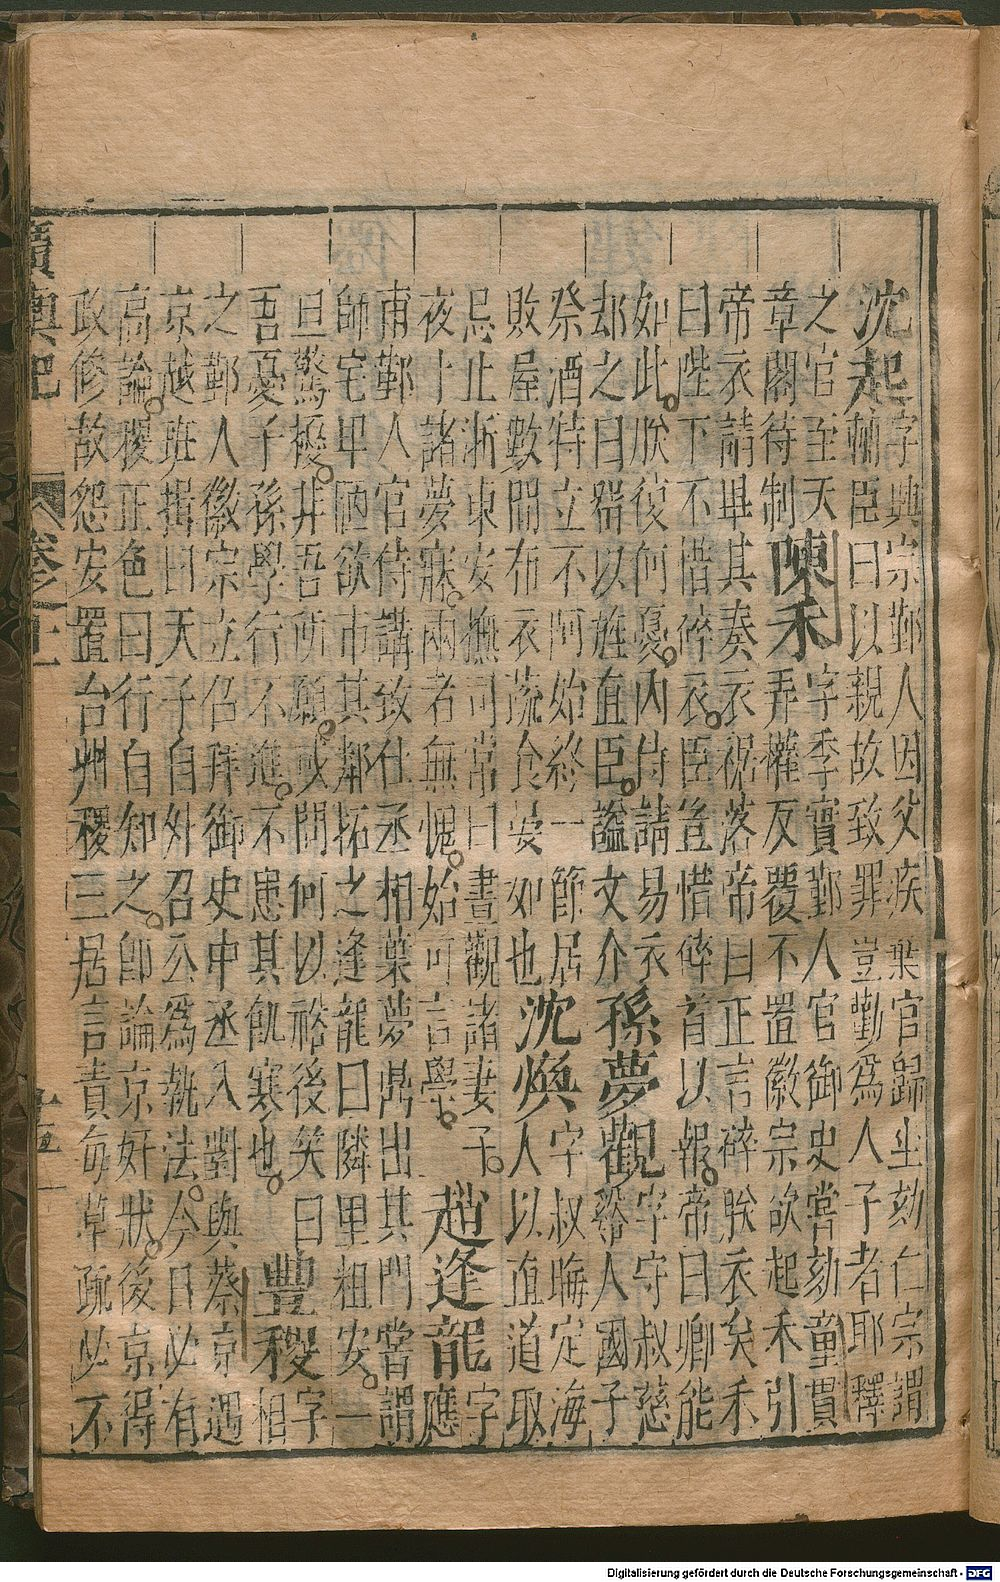 沈起字興宗鄞人因父疾棄官歸坐劾仁宗謂
輔臣曰以親故致罪豈勸爲人子者耶釋
之官至天
章閣待制陳禾字季實鄞人官御史嘗劾童貫
弄權反覆不置徽宗欲起禾引
帝衣請畢其奏衣裾落帝曰正言碎朕衣矣禾
曰陛下不惜碎衣臣豈惜碎首以報帝曰卿能
如此朕復何憂內侍請易衣
却之曰留以旌直臣謚文介孫夢觀字守叔慈
谿人國子
祭酒特立不阿始終一節居
敗屋數間布衣蔬食晏如也沈煥字叔晦定海
人以直道取
忌止浙東安撫司常曰晝觀諸妻子
夜卜諸夢寐兩者無愧始可言學趙逢龍字
應
甫鄞人官侍講致仕丞相葉夢鼎出其門嘗謂
師宅卑陋欲市其鄰拓之逢龍曰隣里粗安一
旦驚擾非吾所願或問何以裕後笑曰
吾憂子孫學行不進不患其飢寒也豐稷字
相
之鄞人徽宗立召拜御史中丞入對與蔡京遇
京越班揖曰天子自外召公爲執法今日必有
高論稷正色曰行自知之卽論京奸狀後京得
政修故怨安置台州稷三居言責每草疏必不
廣輿記 卷之十一 十五
Digitalisierung gefördert durch die Deutsche Forschungsgemeinschaft - DFG